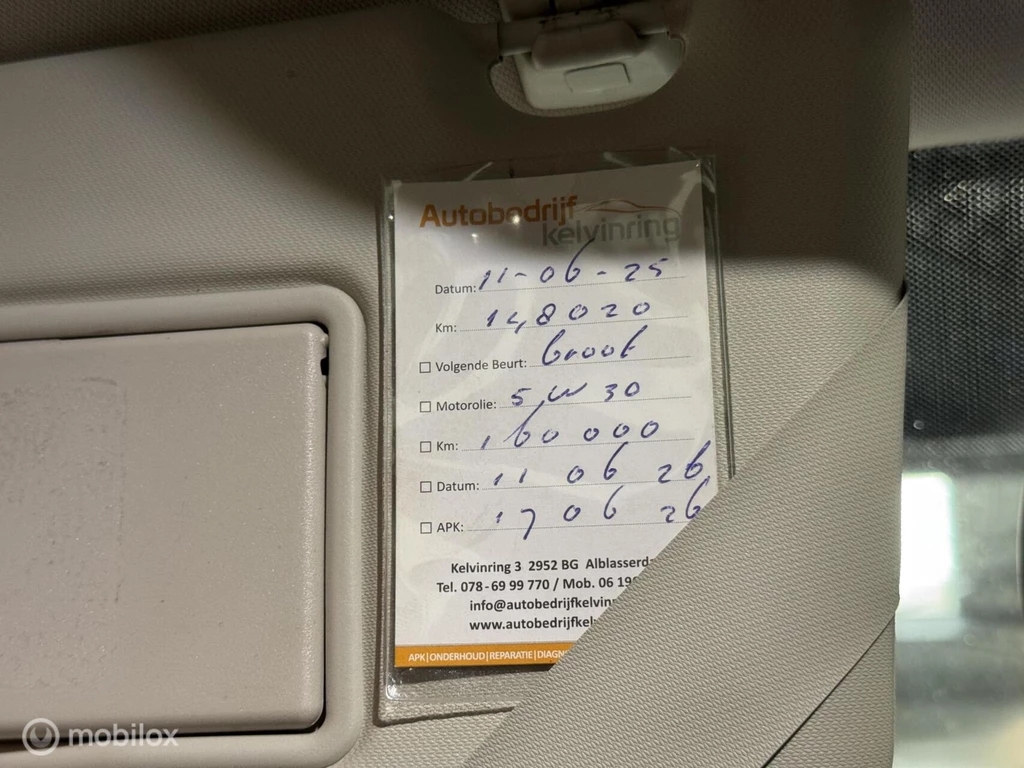 Autobedrijf
kelvinring
Datum: 11-06-25
Km: 148020
Volgende Beurt: Groot
Motorolie: 5W30
Km: 160 000
Datum: 11 06 26
APK: 17 06 26
Kelvinring 3 2952 BG Alblasserda
Tel. 078-69 99 770 / Mob. 06 19
info@autobedrijfkelvinrin
www.autobedrijfkelv
APK|ONDERHOUD|REPARATIE|DIAGN
mobilox